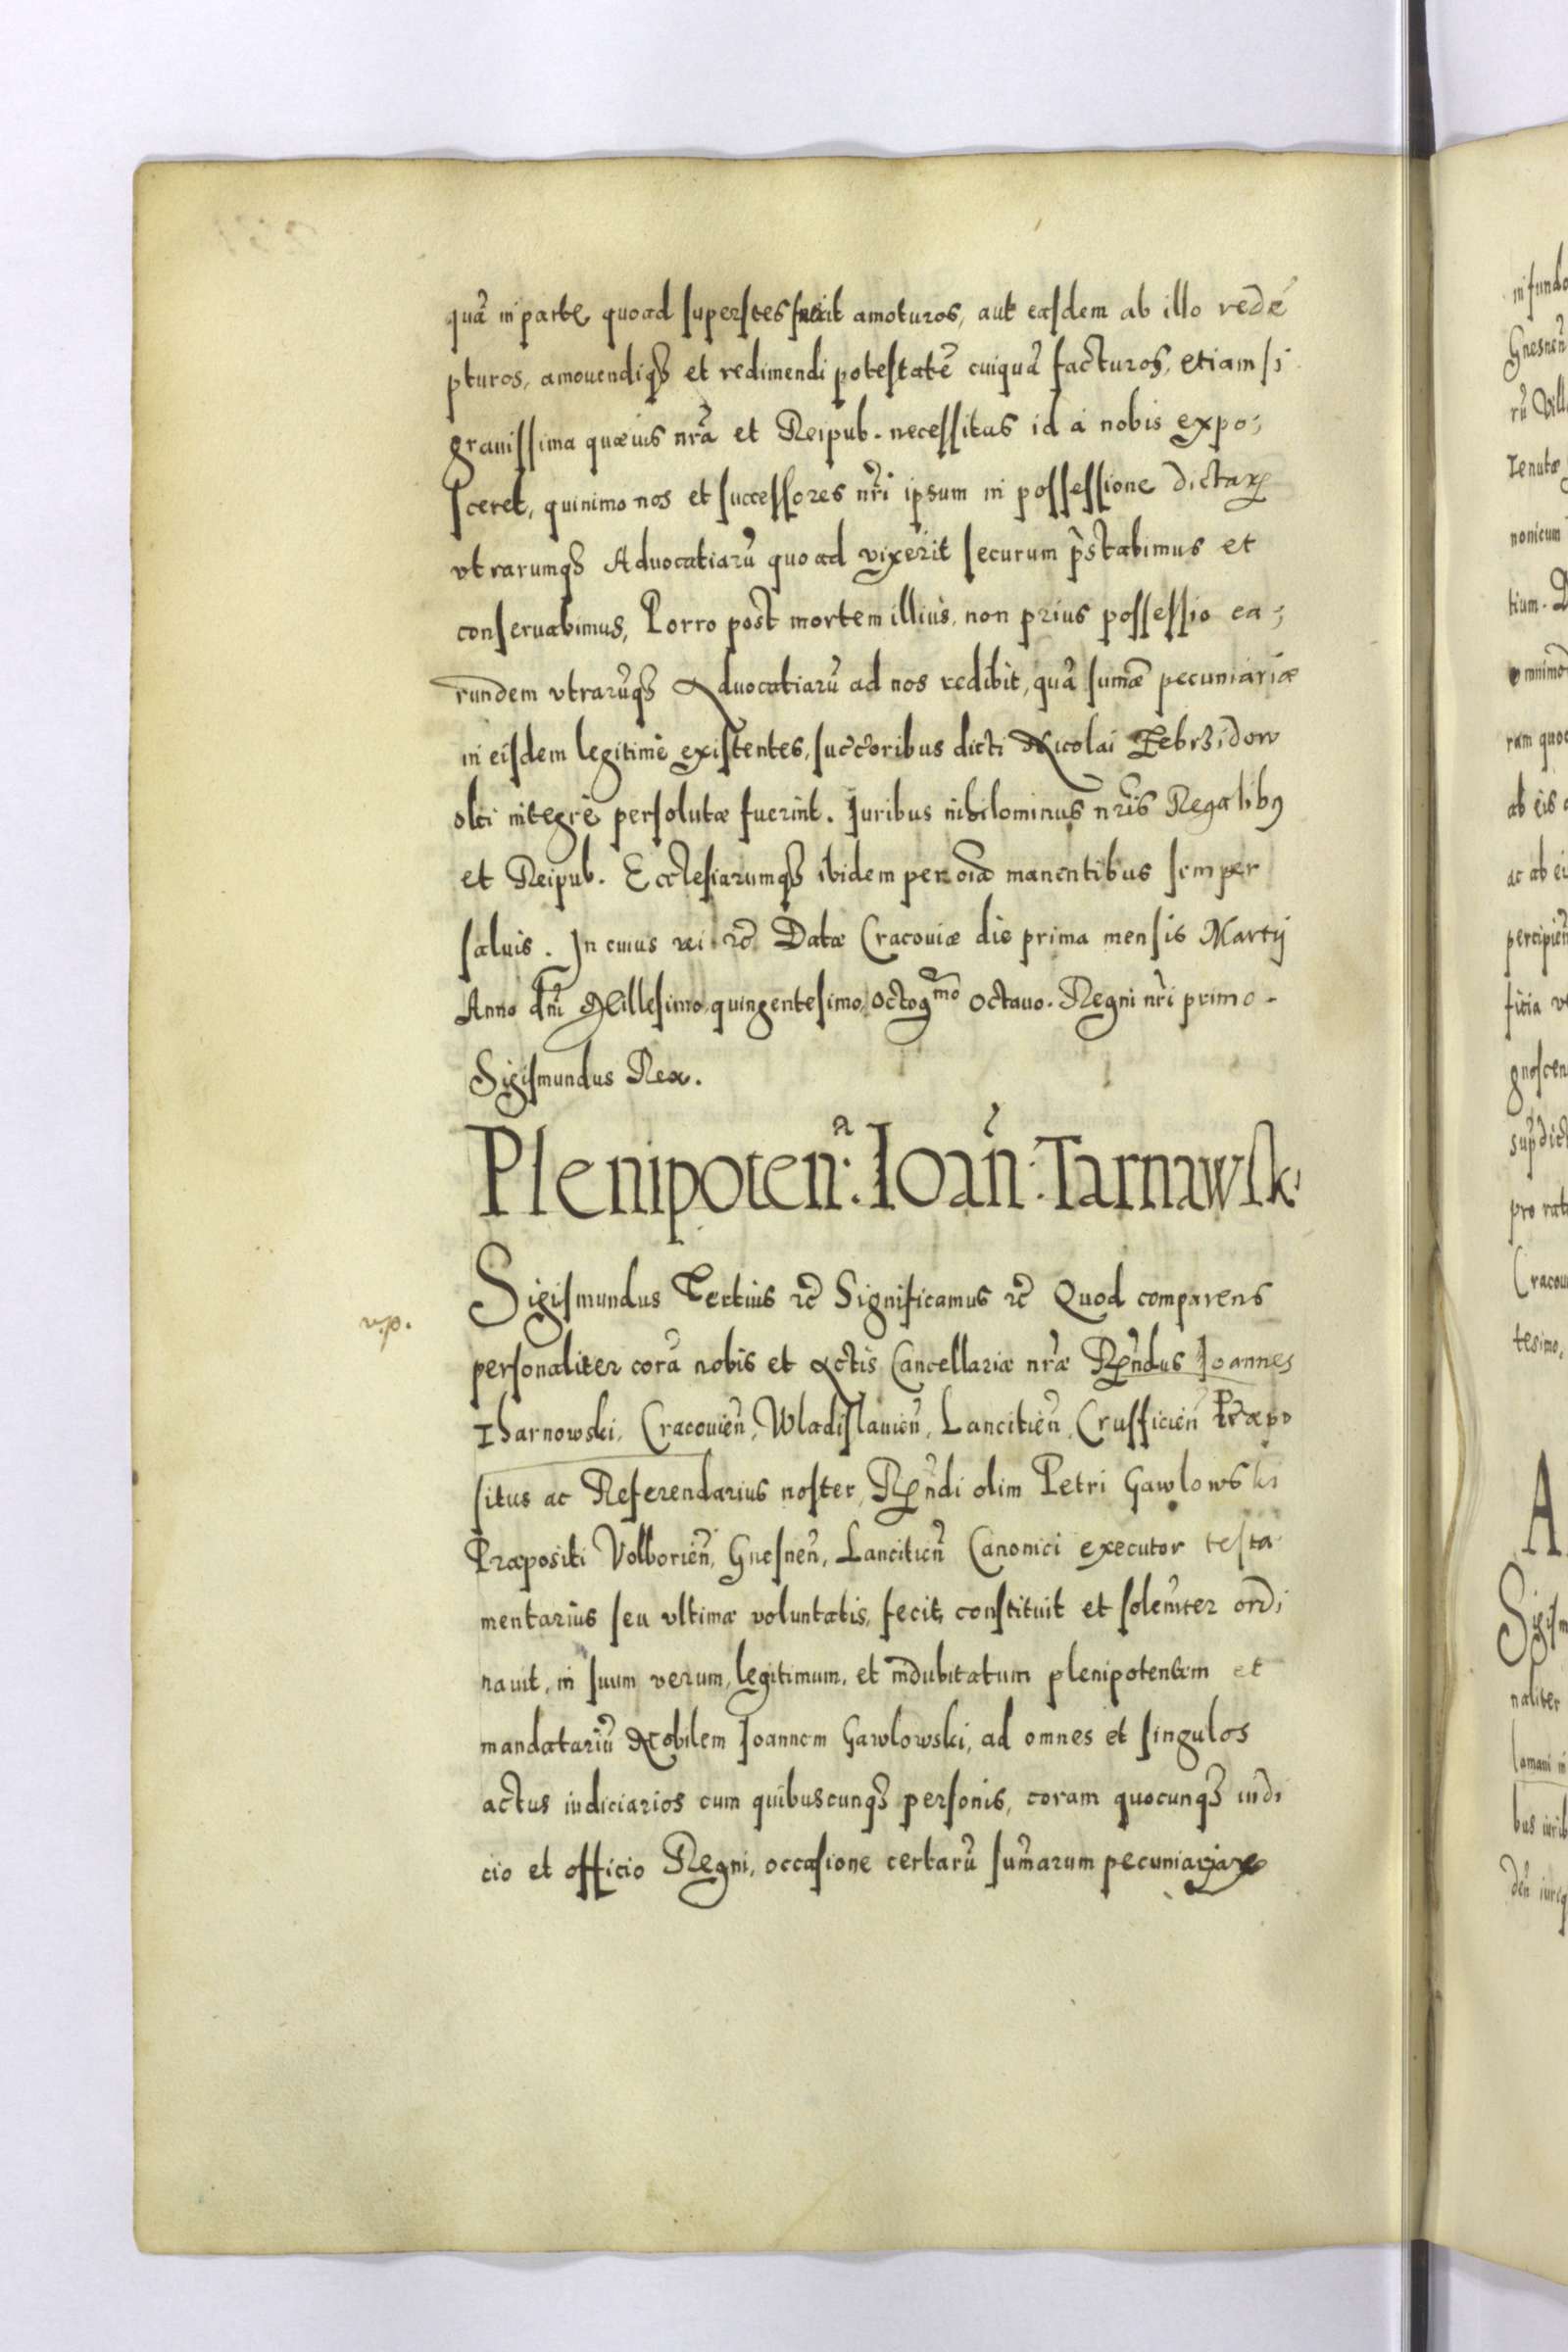 quā in parte quoad superstes fuerit amoturos, aut easdem ab illo redē
pturos, amouendiqȝ et redimendi potestatē cuiquā facturos, etiam si
grauissima quæuis nrā et Reipub. necessitas id a nobis expo-
sceret, quinimo nos et successores nr̄i ipsum in possessione dictaꝝ
vtrarumqȝ Aduocatiarū quoad vixerit securum p̄stabimus et
conseruabimus, Porro post mortem illius, non prius possessio ea-
rundem vtrarūqȝ Aduocatiarū ad nos redibit, quā sum̄æ pecuniariæ
in eisdem legitimè existentes, succ̄oribus dicti Nicolai Zebrzidow
olci integrè persolutæ fuerint. Iuribus nihilominus nr̄is Regalibꝯ
et Reipub. Ecclesiarumqȝ ibidem per oīa manentibus semper
saluis. In cuius rei ꝛc̄ Datæ Cracouiæ die prima mensis Martij
Anno dn̄i Millesimo quingentesimo, Octogmo octauo. Regni nr̄i primo.
Sigismundus Rex.
Plenipoten: a Ioan̄: Tarnawsk:
Sigismundus Tertius ꝛc̄ Significamus ꝛc̄ Quod comparens
v.p.
personaliter corā nobis et actis Cancellariæ nr̄æ Rn̄dus Ioannes
Tharnowski, Cracouien̄, Wladislauien̄, Lancitien̄, Crusficien̄ Præpo
situs ac Referendarius noster, Rn̄di olim Petri Gawlowski
Præpositi Volborien̄, Gnesnen̄, Lancitien̄ Canonici executor testa
mentarius seu vltimæ voluntatis, fecit, constituit et solen̄iter ordi
nauit, in suum verum, legitimum, et indubitatum plenipotentem et
mandatariū Nobilem Ioannem Gawlowski, ad omnes et singulos
actus iudiciarios cum quibuscunqȝ personis, coram quocunqȝ iudi
cio et officio Regni, occasione certarū sum̄arum pecuniariaꝝ